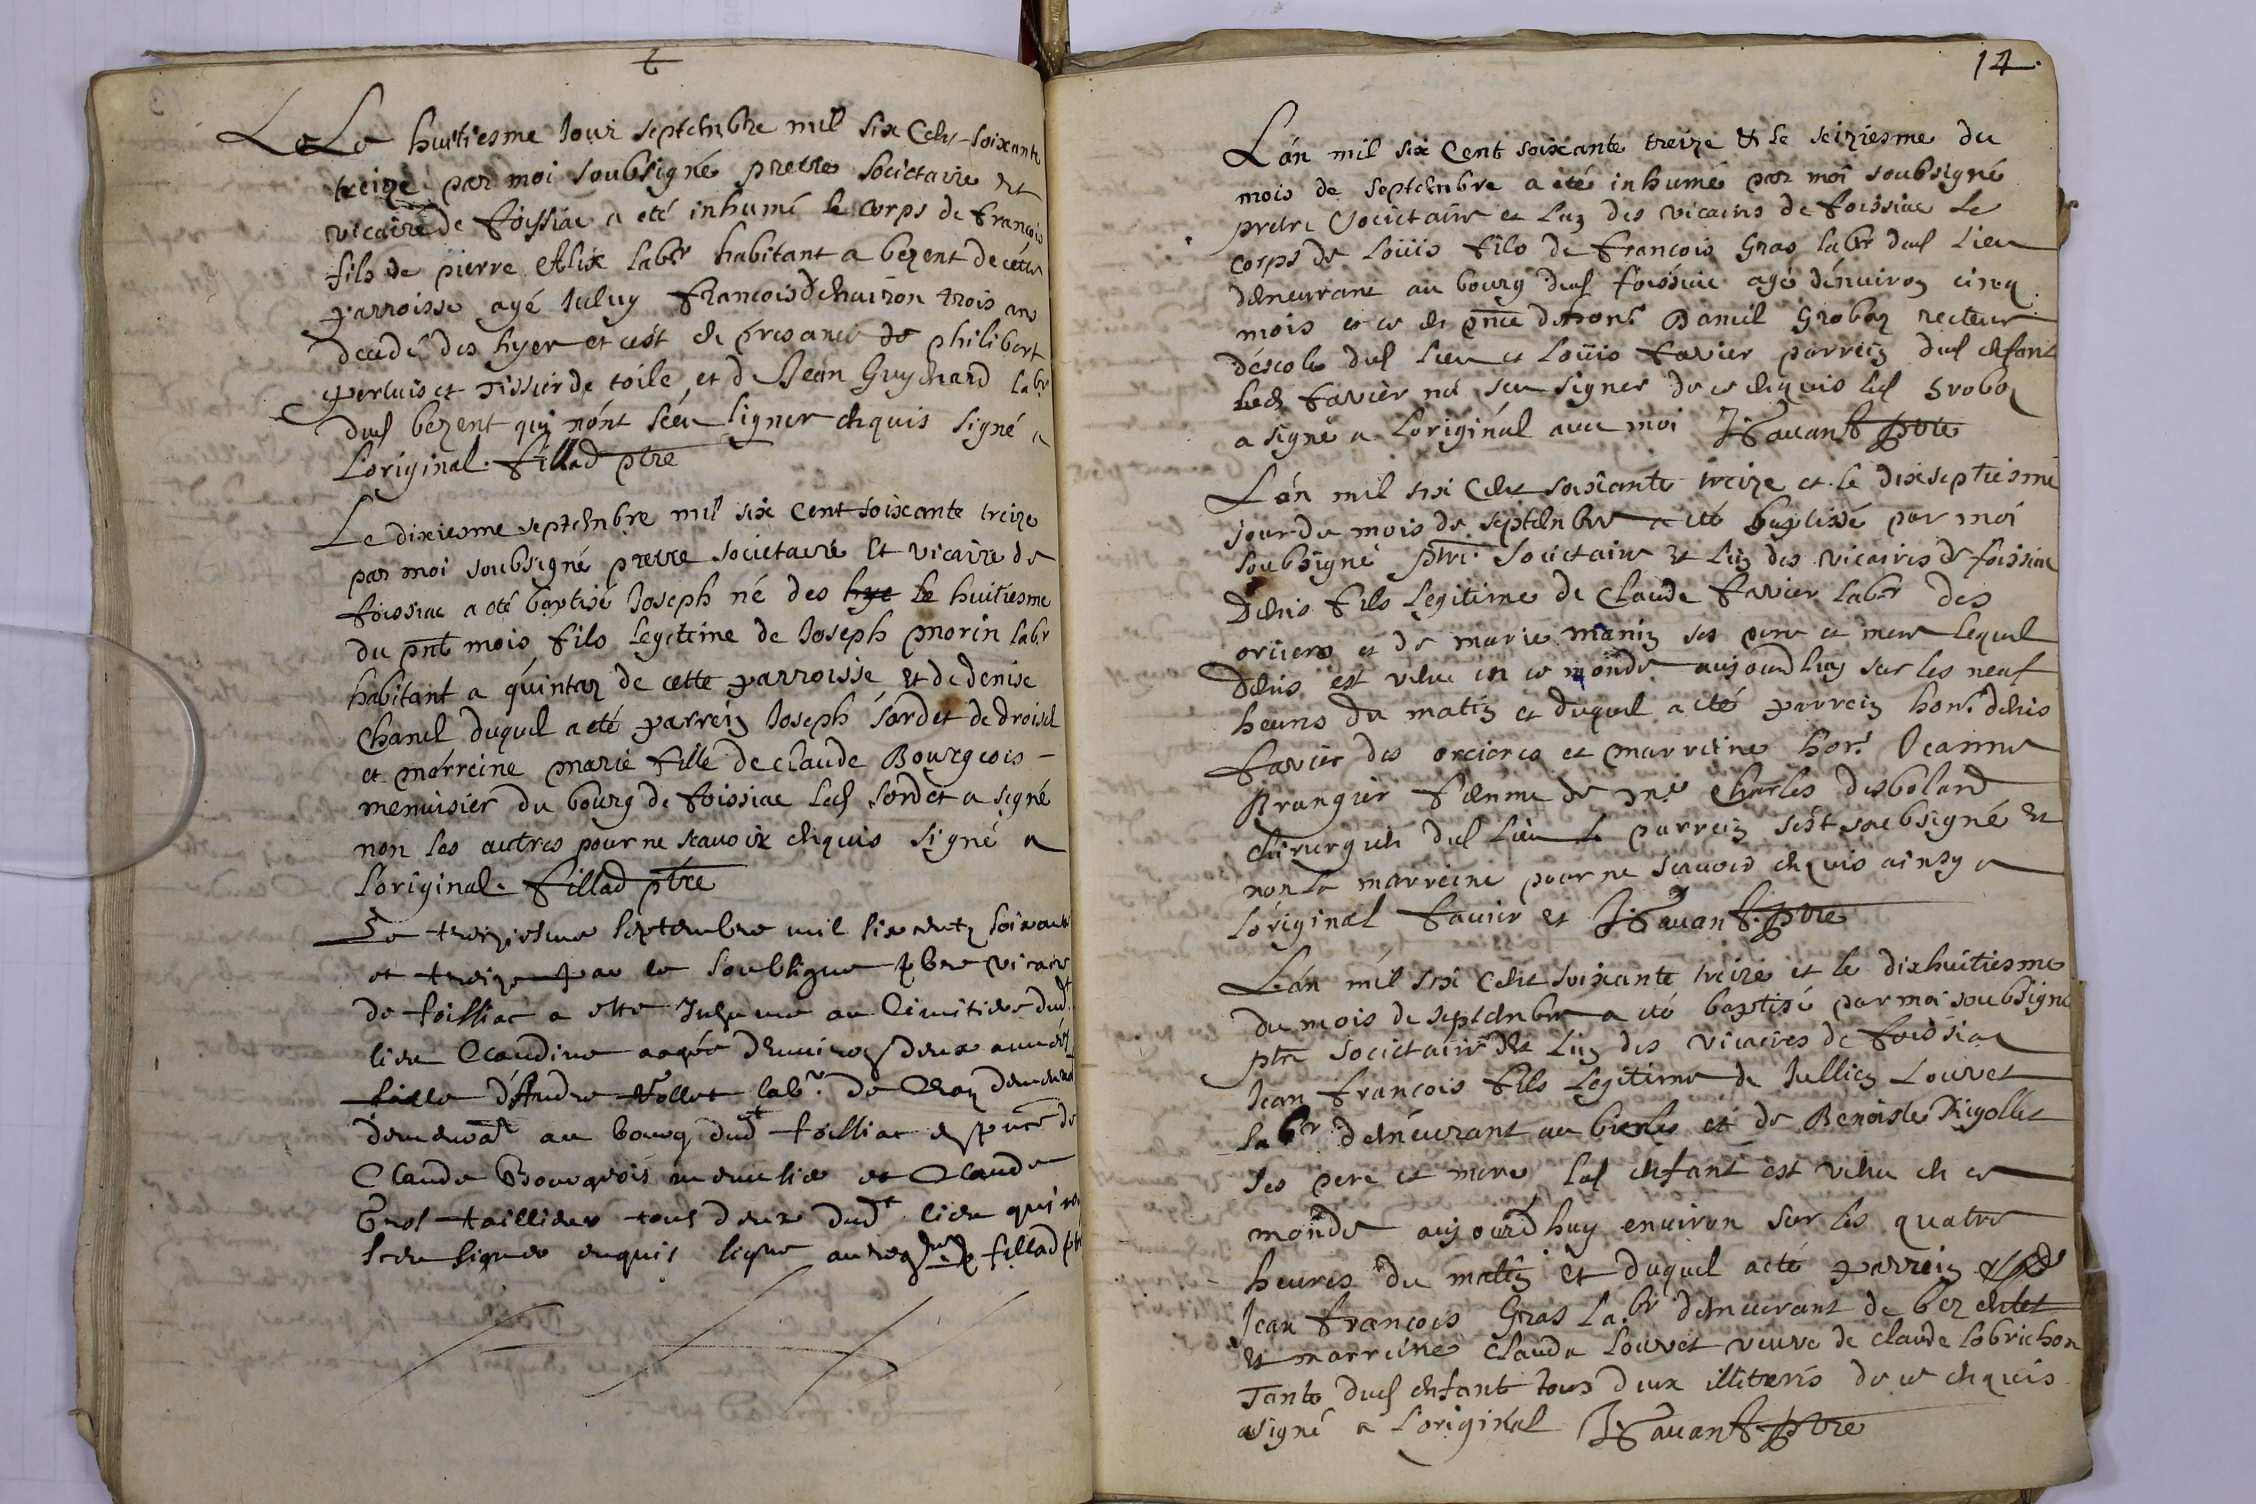 t
Le Le huitiesme Jour septembre mil six cens soixante
treize par moi soubsigné prettre societaire et
vicaire de foissiac a eté inhumé le corps de francois
fils de pierre Alix labr habitant a bezent de cette
parroisse agé Iceluy francois denuiron trois ans
decedé des hyer et cest en presance de philibert
perluis et Tissier de toile et de Jean Guychard labr
dud bezent qui nónt scéu signer enquis signé a
L'original. fillad ptre
Le dixiesme septembre mil six cent soixante treize
par moi soubsigné prettre societaire et vicaire de
foissiac a eté baptisé Joseph né des hye le huitiesme
du pnt mois fils legitime de Joseph morin labr
habitant a quintaz de cette parroisse et de denise
Chanel duquel a eté parrein Joseph sordet de droisel
et mérreine marie fille de claude Bourgeois
menuisier du bourg de foissiac led sordet a signé
non les autres pour ne scauoir enquis signé a
L'original. fillad ptre
Le treiziesme septembre mil six centz soixante
et treize par le soubsigne pbre vicaire
de foissiac a este Inhume au Cimitiere dud
lieu Claudine aagée denuiron deux années
fille d'Andre Vollet labr. de
demeurat au bourg dudt foissiac en pnce de
Claude Bourgeois menusier et Claude
Gros taillieur tous deux dudt lieu qui non
sceu signer enquis signe fillad ptre
14.
Lán mil six Cent soixante treize et le seiziesme du
mois de septembre a eté inhumé par moi soubsigné
pretre Societaire et lun des vicaires de foissiac Le
corps de Loüis fils de francois Gras labr dud Lieu
demeurant au bourg dud foissiac agé dénuiron cinq
mois et ce en pnce de honr Daniel Grobaz recteur
déscole dud Lieu et Loüis favier parrein dud enfant
led favier na sceu signer de ce enquis led Groboz
a signé a Loriginal auec moi Jsauant ptre
Lán mil six Cent soixante treize et le dixseptiesme
jour du mois de septembre a eté baptissé par moi
soubsigné ptre. societaire et lun des vicaires de foissiac
Denis fils Legitime de Claude favier labr des
orciers et de marie manin ses pere et mere lequel
Denis est venu en ce monde aujourdhuy sur les neuf
heures du matin et duquel a eté parrein honr. denis
favier des orcieres et marreine honr. Jeanne
Brangier femme de me Charles desbolard
chirurgien dud lieu le parrein sést soubsigné et
non la marreine pour ne scauoir enquis ainsy a
Lóriginal fauier et Jsauant. ptre
Lán mil six Cent soixante treize et le dixhuitiesme
du mois de septembre a eté baptisé par moi soubsigné
ptre societaire et lun des vicaires de foissiac
Jean francois fils Legitime de Jullien Louvet
labr demeurant au et de Benoiste Rigollet
ses pere et mere led enfant est venu en ce
monde aujourdhuy enuiron sur les quatre
heures du matin et duquel a eté parrein
Jean francois Gras labr demeurant de bez
et marreine Claude Louvet veuve de claude lobrichon
Tante dud enfant tous deux illiterés de ce enquis
asigné a Loriginal Jsauant. ptre